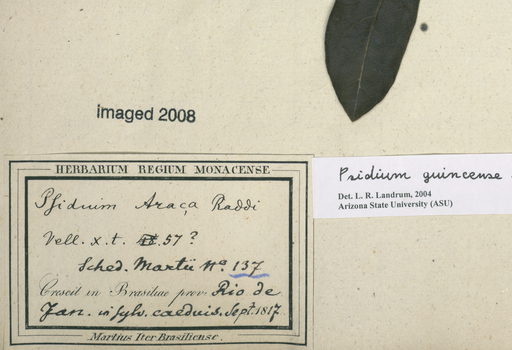 imaged 2008
HERBARIUM REGIUM MONACENSE
Psidium Araça Raddi
Vell. x. t. 57?
Sched. Martii No 137
Crescit in Brasiliae prov. Rio de
Jan. in sylv. caeduis. Sept. 1817.
Martius Iter Brasiliense.
Psidium guineense
Det. L. R. Landrum, 2004
Arizona State University (ASU)